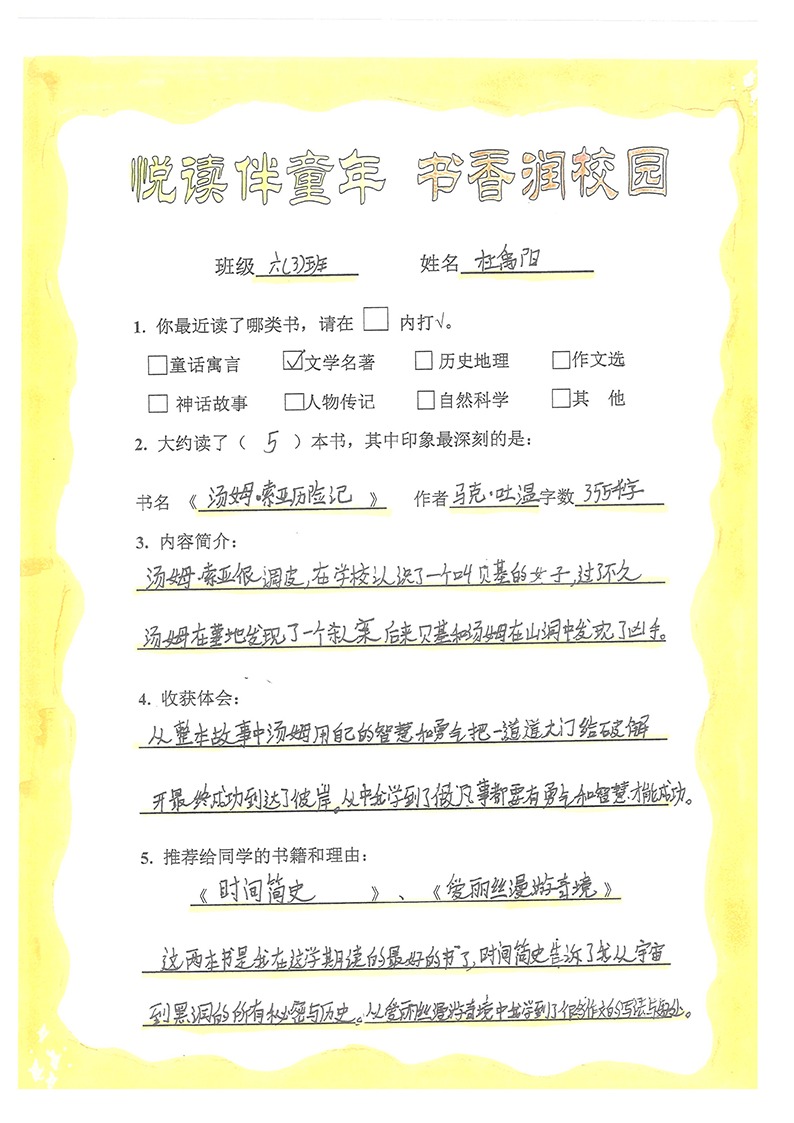 悦读伴童年 书香润校园
班级 六(3)班 姓名 杜禹阳
1. 你最近读了哪类书，请在 □ 内打√。
□童话寓言 ☑文学名著 □历史地理 □作文选
□神话故事 □人物传记 □自然科学 □其 他
2. 大约读了（ 5 ）本书，其中印象最深刻的是：
书名《 汤姆·索亚历险记 》 作者 马克·吐温 字数 355千字
3. 内容简介：
汤姆·索亚很调皮，在学校认识了一个叫贝基的女子，过了不久
汤姆在墓地发现了一个杀人案 后来贝基和汤姆在山洞中发现了凶手。
4. 收获体会：
从整本故事中汤姆用自己的智慧和勇气把一道道大门给破解
开最终成功到达了彼岸。从中我学到了做凡事都要有勇气和智慧才能成功。
5. 推荐给同学的书籍和理由：
《 时间简史 》、《爱丽丝漫游奇境》
这两本书是我在这学期读的最好的书了，时间简史告诉了我从宇宙
到黑洞的所有秘密与历史。从爱丽丝漫游奇境中我学到了很多作文的写法与好处。